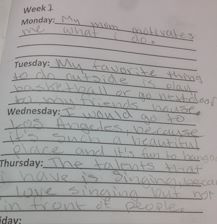 Week 1
Monday: My mom motivates
me what I do.
Tuesday: My favorite thing
to do outside is play
basketball or go next door
to my friends house
Wednesday: I would go to
Los Angeles, because
it's such a beautiful
place and it's fun to
Thursday: The talent that
I have is singing because
I love singing but not
in front of people.
iday: